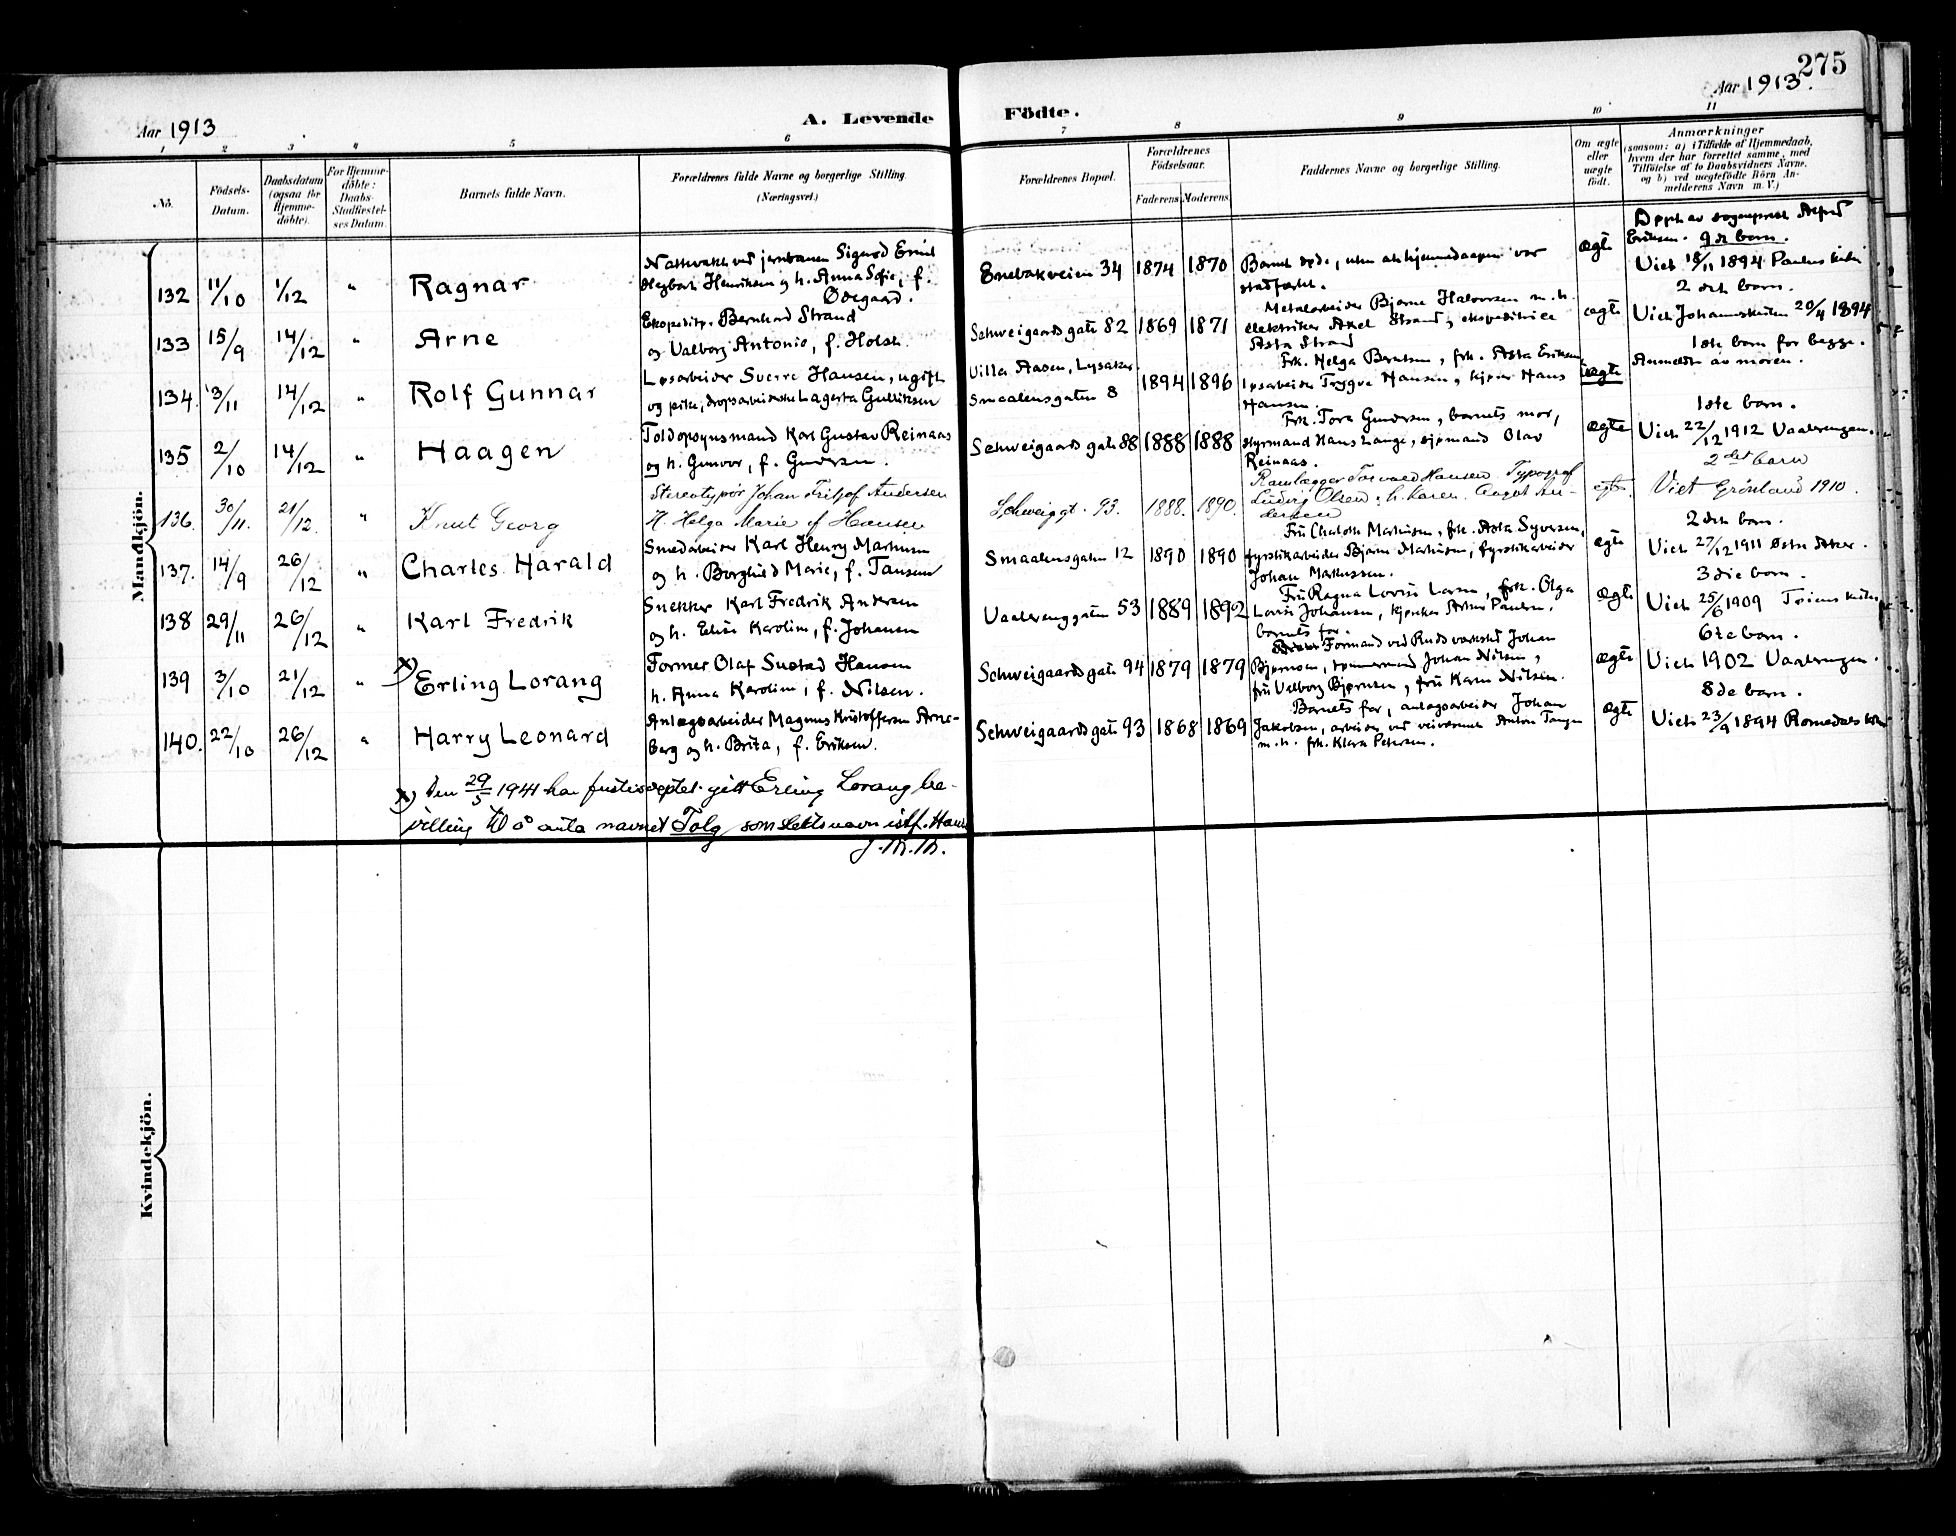 275
Aar 1913
A. Levende
Födte.
Aar 1913.
1 2 3 4 5 6 7 8 9 10 11
No.
Födsels-
Datum.
Daabsdatum
(ogsaa for
Hjemme-
döbte).
For Hjemme-
döbte:
Daabs-
Stadfæstel-
ses Datum.
Barnets fulde Navn.
Forældrenes fulde Navne og borgerlige Stilling.
(Næringsvei.)
Forældrenes Bopæl.
Forældrenes
Födselsaar.
Faderens Moderens
Faddernes Navne og borgerlige Stilling.
Om ægte
eller
uægte
födt.
Anmærkninger
(saasom: a) i Tilfælde af Hjemmedaab,
hvem der har forrettet samme, med
Tilföielse af to Daabsvidners Navne,
og b) ved uægtefödte Börn An-
melderens Navn m. V.)
Mandkjön.
132 11/10 1/12 " Ragnar
Nattvakt ved jernbanen Sigurd Emil
Henriksen og h. Anna Sofie, f.
Ødegaard.
Enebakveien 34 1874 1870
Barnet døde, uten at hjemmedaapen var
stadfæstet.
ægte
Døpt av sogneprest Alfred
Eriksen. 9de barn.
Viet 18/11 1894 Paulus kirke
133 15/9 14/12 " Arne
Ekspeditør Bernhard Strand
og Valborg Antonie, f. Holst.
Schweigaards gate 82 1869 1871
Metalarbeider Bjarne Halvorsen m. h.
elektriker Axel Strand, ekspeditrice
Asta Strand
ægte
2det barn.
Viet Johanneskirken 20/4 1894
134. 13/11 14/12 " Rolf Gunnar
Løsarbeider Sverre Hansen, ugift
og pike, dropsarbeiderske Lagerta Gulliksen
Villa Aasen, Lysaker
Smaalensgaten 8 1894 1896
Frk. Helga Berntsen, frk. Asta Eriksen,
løsarbeider Trygve Hansen, kjører Hans
Hansen.
uægte
1ste barn for begge.
Anmeldt av moren.
135 2/10 14/12 " Haagen
Toldopsynsmand Karl Gustav Reinaas
og h. Gunvor, f. Gundersen.
Schweigaards gate 88 1888 1888
Frk. Tora Gundersen, barnets mor,
styrmand Hans Lange, sjømand Olav
Reinaas.
ægte
1ste barn.
Viet 22/12 1912 Vaalerengen.
136. 30/11. 21/12. " Knut Georg
Stereotypør Johan Fritjof Andersen
H. Helga Marie f Hansen
Schweiggt. 93. 1888. 1890.
Ramlægger Torvald Hansen Typograf
Ludvig Olsen, h. Karen. Aagot An-
dersen
egte.
2det barn
Viet Grönland 1910.
137. 14/9 26/12 " Charles Harald
Smedarbeider Karl Henry Martinsen
og h. Borghild Marie, f. Jansen
Smaalensgaten 12 1890 1890
Fru Charlotte Martinsen, frk. Asta Syversen,
fyrstikarbeider Bjarne Martinsen, fyrstikarbeider
Johan Markussen.
ægte
2det barn.
Viet 27/12 1911 Østre Aker.
138 29/11 26/12 " Karl Fredrik
Snekker Karl Fredrik Andersen
og h. Elise Karoline, f. Johansen
Vaalerenggaten 53 1889 1892
Fru Ragna Lovise Larsen, frk. Olga
Lovise Johansen, kjusker Arthur Paulsen,
barnets far.
ægte
3die barn.
Viet 25/6 1909
139 3/10 21/12 " x) Erling Lorang
Former Olaf Sustad Hansen
h. Anna Karoline, f. Nilsen.
Schweigaards gate 94 1879 1879
Formand ved Ruds værksted Johan
Bjørnsen, tømmermand Johan Nilsen,
fru Valborg Bjørnsen, fru Karen Nilsen.
ægte
6te barn.
Viet 1902 Vaalerengen.
140. 22/10 26/12 " Harry Leonard
Anlægsarbeider Magnus Kristoffersen Arne-
berg og h. Brita, f. Eriksen.
Schweigaards gate 93 1868 1869
Barnets far, anlægsarbeider Johan
Jakobsen, arbeider ved veivæsenet Anton Tangen
m. h. frk. Klara Petersen.
ægte
8de barn.
Viet 23/9 1894 Romedals kirke
x) Den 29/5 1941 har justisdeptet gitt Erling Lorang be-
villing til å anta navnet Tolg som slektsnavn istf. Hansen
J.Th.Th.
Kvindekjön.